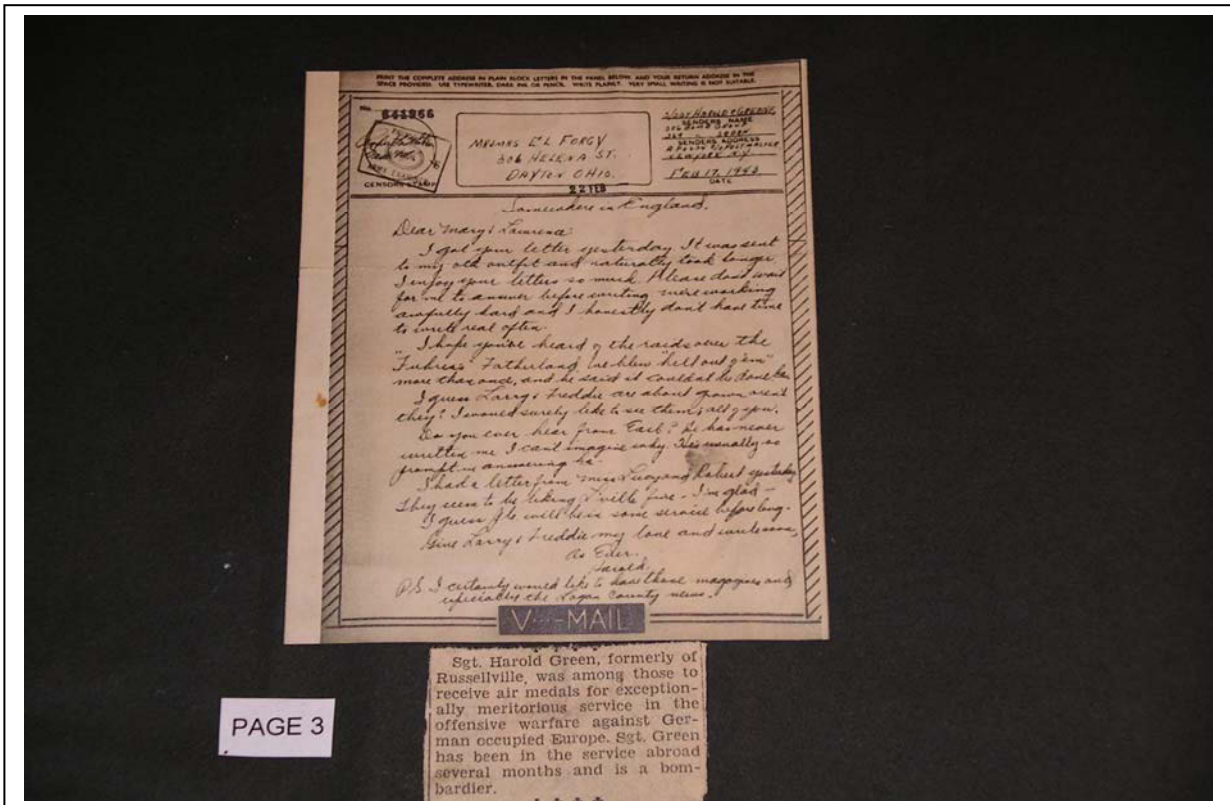 PRINT THE COMPLETE ADDRESS IN PLAIN BLOCK LETTERS IN THE PANEL BELOW, AND YOUR RETURN ADDRESS IN THE
SPACE PROVIDED. USE TYPEWRITER, DARK INK OR PENCIL. WRITE PLAINLY. VERY SMALL WRITING IS NOT SUITABLE.
No.
641966
CENSORS STAMP
MR & MRS E L FORGY
306 HELENA ST.
DAYTON OHIO.
22 FEB
S/SGT HAROLD GREENE
SENDERS NAME
306 BOMB GROUP
SENDERS ADDRESS
NEW YORK N.Y.
FEB 17, 1943
DATE
Somewhere in England.
Dear Mary & Lawrence:
I got your letter yesterday. It was sent
to my old outfit and naturally took longer.
I enjoy your letters so much. Please dont wait
for me to answer before writing. we're working
awfully hard and I honestly don't have time
to write real often.
I hope you've heard of the raids over the
Fatherland. We blew "hell out of em"
more than once, and he said it couldnt be done
I guess Larry & Freddie are about grown aren't
they? I would surely like to see them, all of you.
Do you ever hear from Earl? He has never
written me I can't imagine why. He's usually so
prompt in answering
I had a letter from Miss Lucy and Robert yesterday
They seem to be liking L'ville fine - I'm glad -
I guess will be in some service before long.
Give Larry & Freddie my love and write soon,
As Ever,
Harold.
P.S. I certainly would like to have those magazines and
especially the Logan County news.
V···-MAIL
Sgt. Harold Green, formerly of
Russellville, was among those to
receive air medals for exception-
ally meritorious service in the
offensive warfare against Ger-
man occupied Europe. Sgt. Green
has been in the service abroad
several months and is a bom-
bardier.
PAGE 3